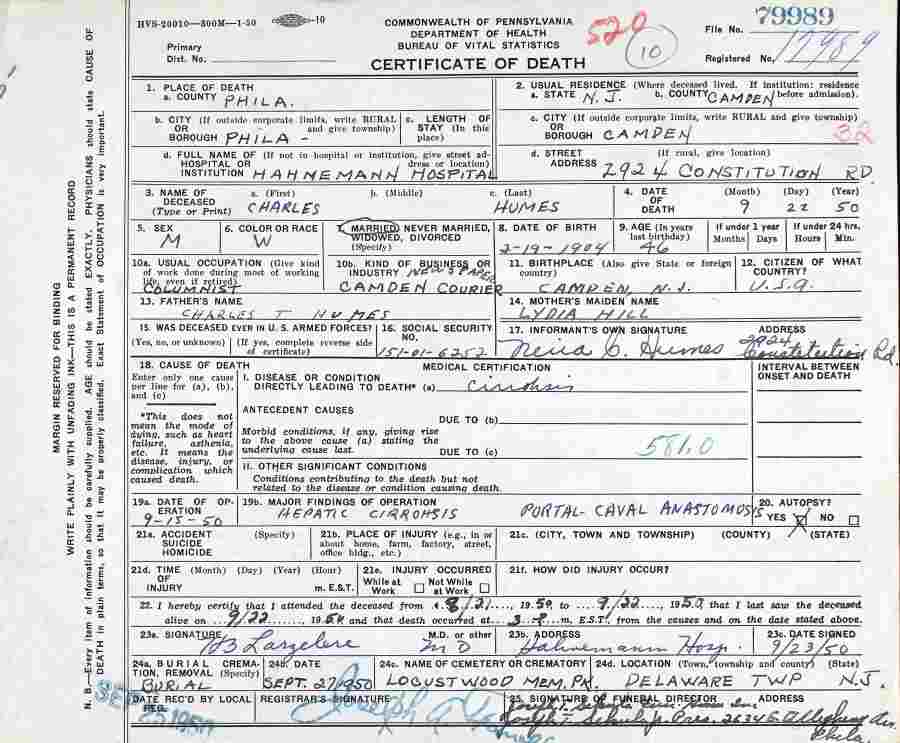 HVS-20010—300M—1-50 10
COMMONWEALTH OF PENNSYLVANIA
DEPARTMENT OF HEALTH
BUREAU OF VITAL STATISTICS
CERTIFICATE OF DEATH
Primary
Dist. No.
520
10
File No. 79989
Registered No. 17989
MARGIN RESERVED FOR BINDING
WRITE PLAINLY WITH UNFADING INK—THIS IS A PERMANENT RECORD
N. B.—Every item of information should be carefully supplied. AGE should be stated EXACTLY. PHYSICIANS should state CAUSE OF
DEATH in plain terms, so that it may be properly classified. Exact Statement of OCCUPATION is very important.
1. PLACE OF DEATH
a. COUNTY PHILA.
2. USUAL RESIDENCE (Where deceased lived. If institution: residence
a. STATE N.J. b. COUNTY CAMDEN before admission).
b. CITY (If outside corporate limits, write RURAL
OR and give township)
BOROUGH PHILA-
c. LENGTH OF
STAY (In this
place)
c. CITY (If outside corporate limits, write RURAL and give township)
OR
BOROUGH CAMDEN
32
d. FULL NAME OF (If not in hospital or institution, give street ad-
HOSPITAL OR dress or location)
INSTITUTION HAHNEMANN HOSPITAL
d. STREET (If rural, give location)
ADDRESS 2924 CONSTITUTION RD.
3. NAME OF a. (First) b. (Middle) c. (Last)
DECEASED
(Type or Print) CHARLES HUMES
4. DATE (Month) (Day) (Year)
OF
DEATH 9 22 50
5. SEX
M
6. COLOR OR RACE
W
7. MARRIED, NEVER MARRIED,
WIDOWED, DIVORCED
(Specify)
8. DATE OF BIRTH
2-19-1904
9. AGE (In years
last birthday)
46
If under 1 year
Months Days
If under 24 hrs.
Hours Min.
10a. USUAL OCCUPATION (Give kind
of work done during most of working
life, even if retired)
COLUMNIST
10b. KIND OF BUSINESS OR
INDUSTRY NEWSPAPER
CAMDEN COURIER
11. BIRTHPLACE (Also give State or foreign
country)
CAMDEN, N.J.
12. CITIZEN OF WHAT
COUNTRY?
U.S.A.
13. FATHER'S NAME
CHARLES T HUMES
14. MOTHER'S MAIDEN NAME
LYDIA HILL
15. WAS DECEASED EVER IN U. S. ARMED FORCES?
(Yes, no, or unknown) (If yes, complete reverse side
of certificate)
16. SOCIAL SECURITY
NO.
151-01-6252
17. INFORMANT'S OWN SIGNATURE ADDRESS
C. Humes 2924
Constitution Rd.
18. CAUSE OF DEATH
Enter only one cause
per line for (a), (b),
and (c)
*This does not
mean the mode of
dying, such as heart
failure, asthenia,
etc. It means the
disease, injury, or
complication which
caused death.
MEDICAL CERTIFICATION
INTERVAL BETWEEN
ONSET AND DEATH
I. DISEASE OR CONDITION
DIRECTLY LEADING TO DEATH* (a) cirrohsis
ANTECEDENT CAUSES
DUE TO (b)
Morbid conditions, if any, giving rise
to the above cause (a) stating the
underlying cause last.
DUE TO (c)
581.0
II. OTHER SIGNIFICANT CONDITIONS
Conditions contributing to the death but not
related to the disease or condition causing death.
19a. DATE OF OP-
ERATION
9-15-50
19b. MAJOR FINDINGS OF OPERATION
HEPATIC CIRROHSIS PORTAL-CAVAL ANASTOMOSIS
20. AUTOPSY?
YES NO
21a. ACCIDENT (Specify)
SUICIDE
HOMICIDE
21b. PLACE OF INJURY (e.g., in or
about home, farm, factory, street,
office bldg., etc.)
21c. (CITY, TOWN AND TOWNSHIP) (COUNTY) (STATE)
21d. TIME (Month) (Day) (Year) (Hour)
OF
INJURY m. E.S.T.
21e. INJURY OCCURRED
While at Work Not While at Work
21f. HOW DID INJURY OCCUR?
22. I hereby certify that I attended the deceased from 8/21, 1950 to 9/22, 1950, that I last saw the deceased
alive on 9/22, 1950 and that death occurred at 3 m, E.S.T. from the causes and on the date stated above.
23a. SIGNATURE M.D. or other
HB Larzelere MD
23b. ADDRESS
Hahnemann Hosp.
23c. DATE SIGNED
9/23/50
24a. BURIAL CREMA-
TION, REMOVAL (Specify)
BURIAL
24b. DATE
SEPT. 27/1950
24c. NAME OF CEMETERY OR CREMATORY
LOCUSTWOOD MEM. PK.
24d. LOCATION (Town, township and county) (State)
DELAWARE TWP N.J.
DATE REC'D BY LOCAL
REG.
SEP 25 1950
REGISTRAR'S SIGNATURE
Joseph A
25. SIGNATURE OF FUNERAL DIRECTOR ADDRESS
Joseph T. Pres. 2634 E. Allegheny Av.
Phila.